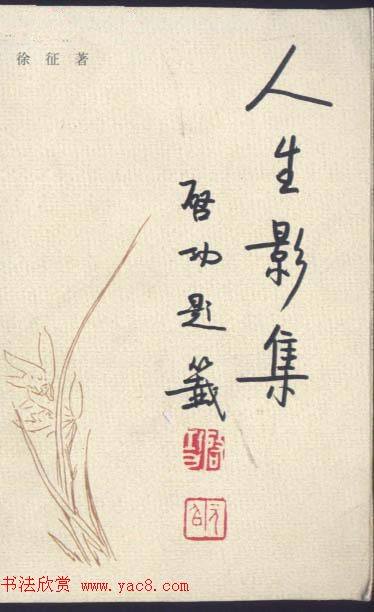 徐征著
人生影集
启功题签
启功
元白
书法欣赏 www.yac8.com